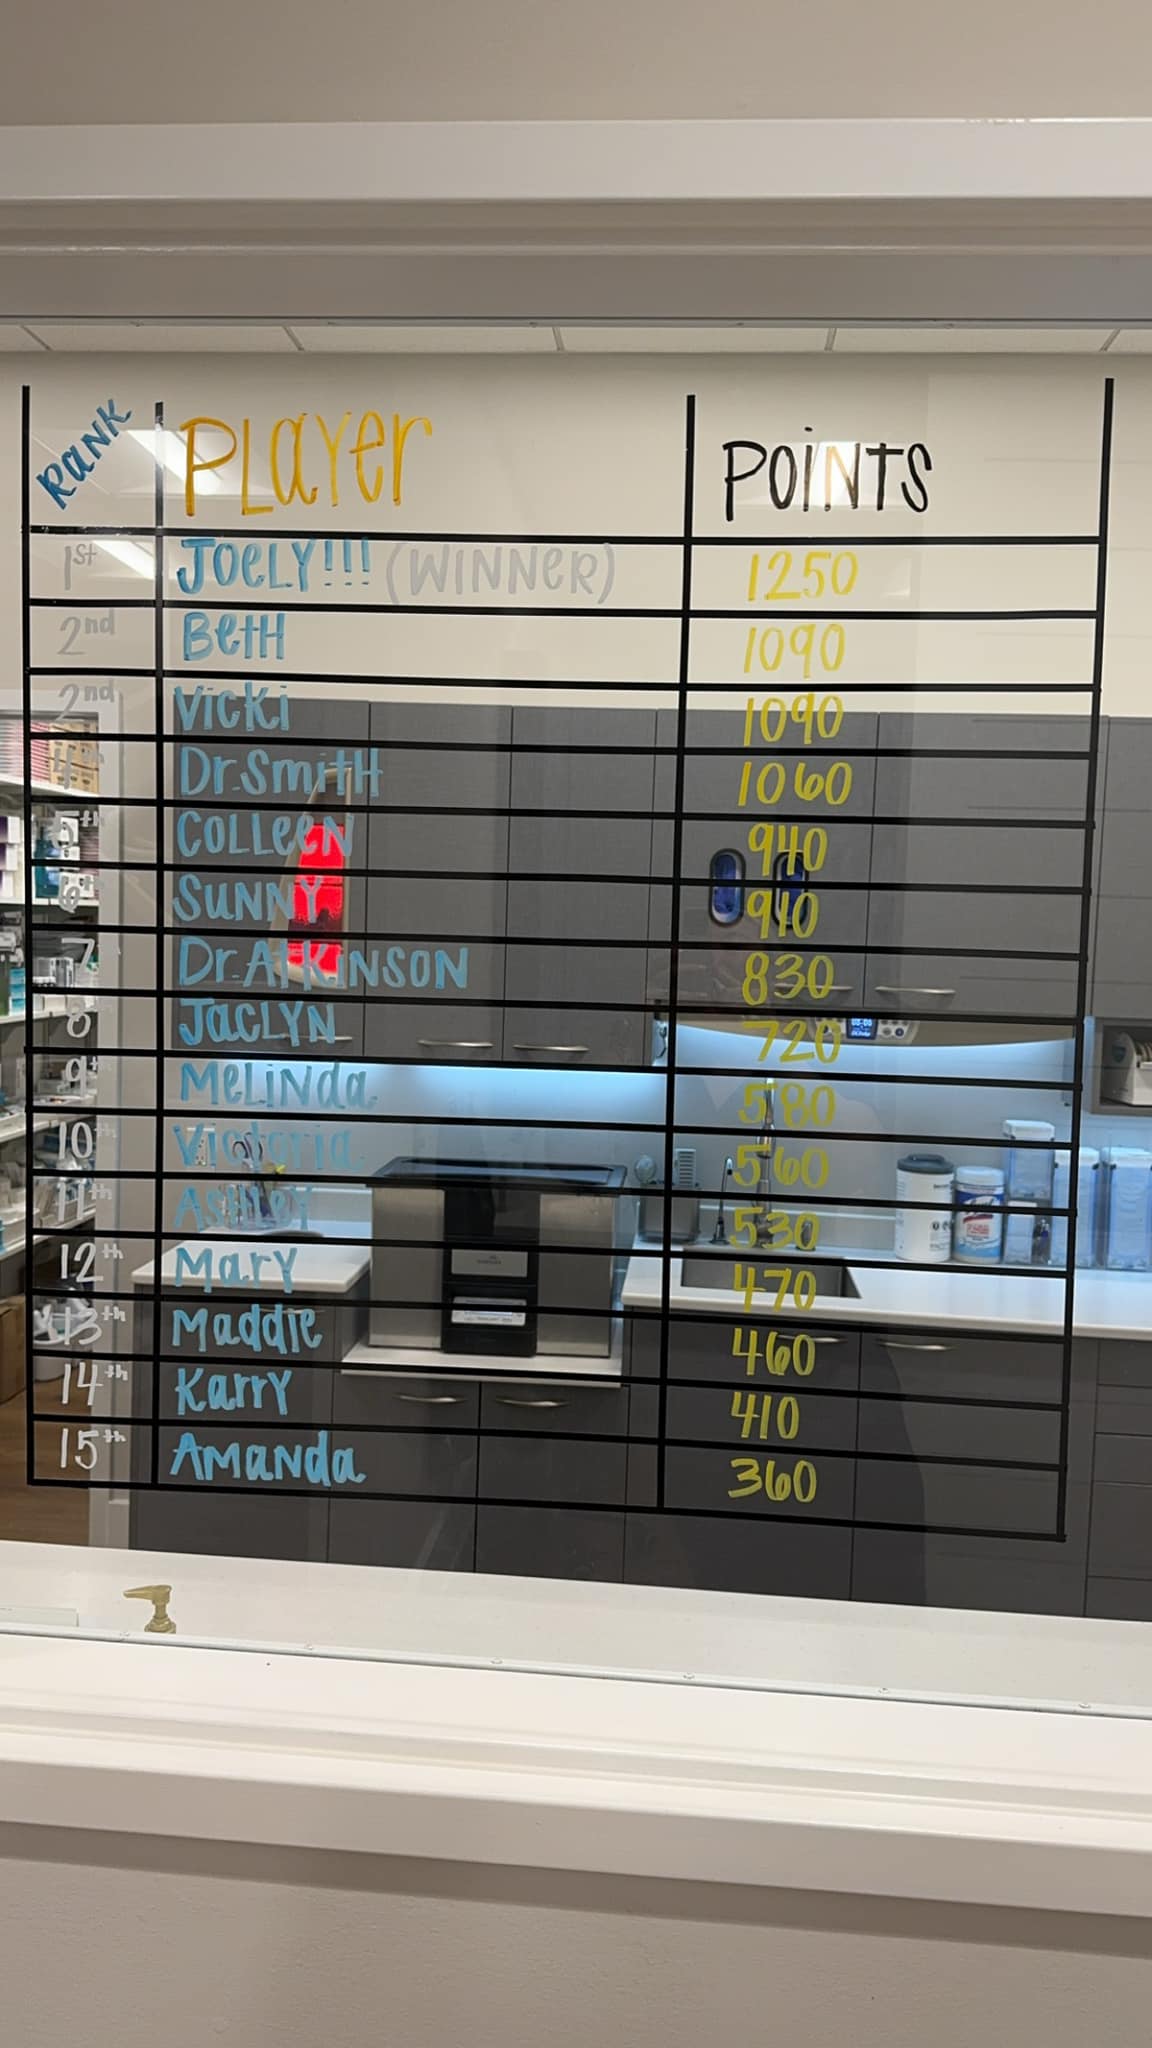 Rank Player Points
1st Joely!!! (Winner) 1250
2nd Beth 1090
2nd Vicki 1090
4th Dr. Smith 1060
5th Colleen 940
6th Sunny 910
7 Dr. Atkinson 830
8 Jaclyn 720
9th Melinda 580
10th Victoria 560
11th Ashley 530
12th Mary 470
13th Maddie 460
14th Karry 410
15th Amanda 360